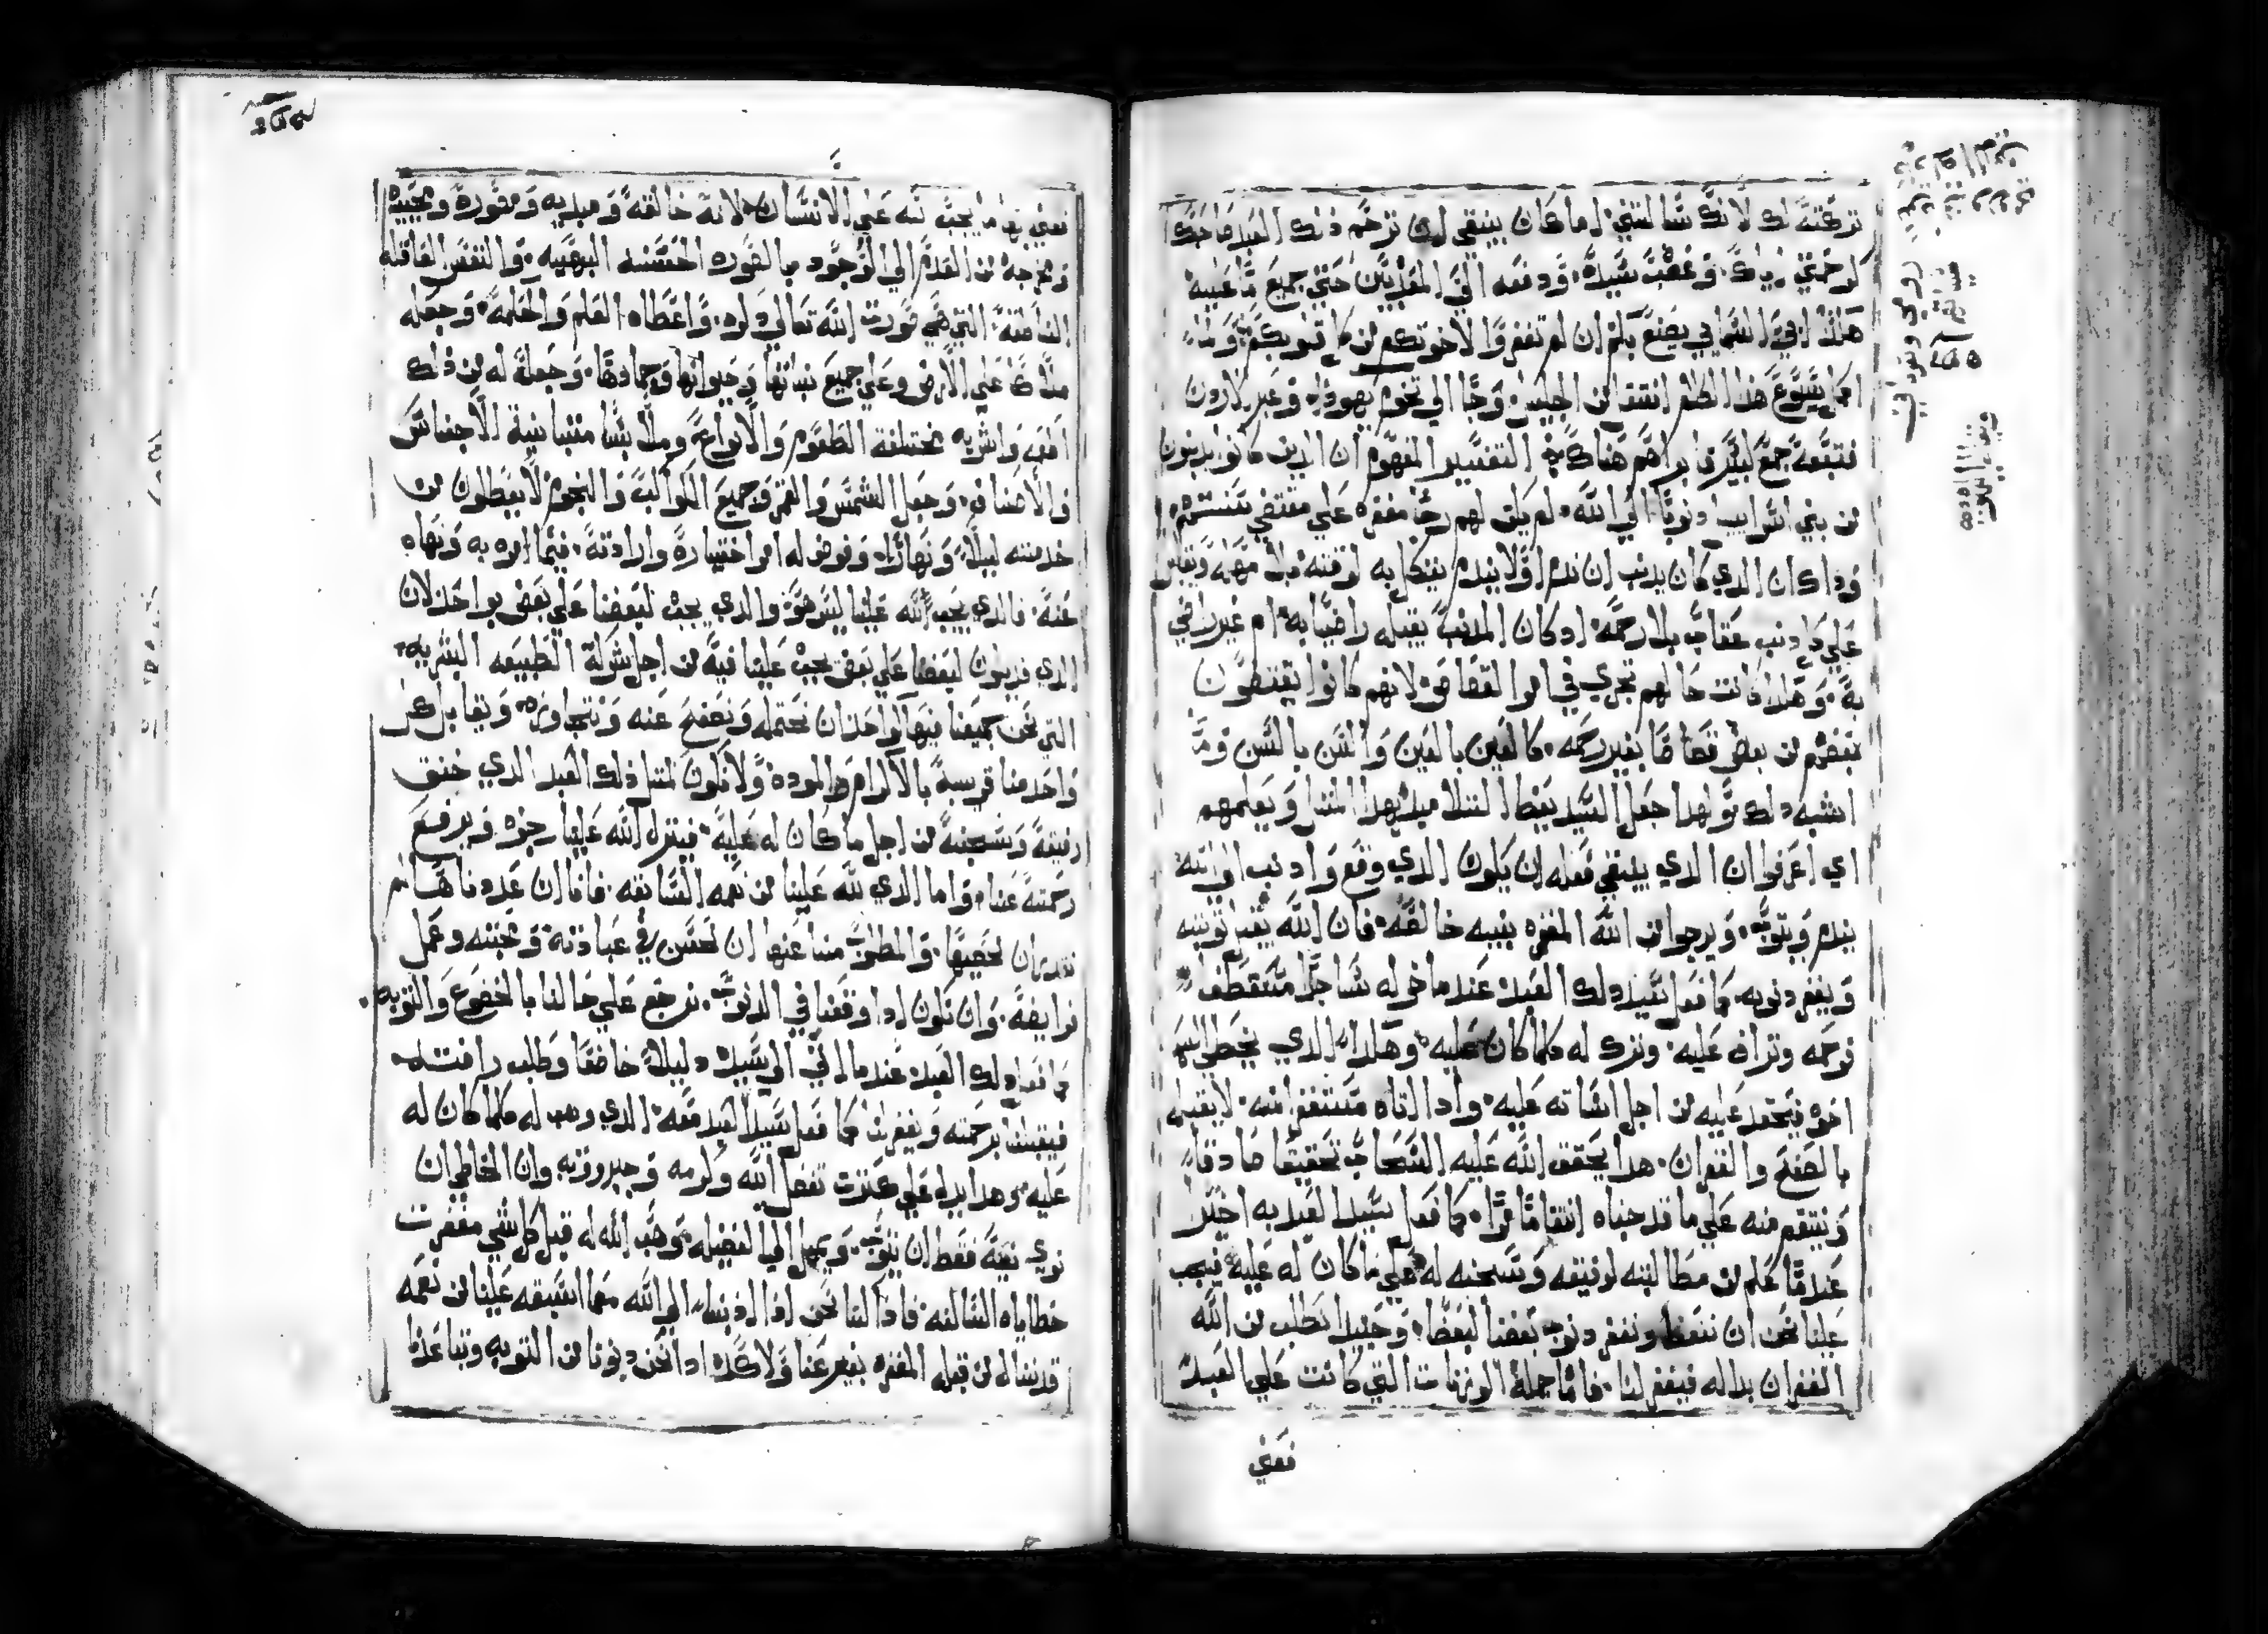 تركته لك لانك سالتني. اما كان ينبغي ان ترحم ذلك العبد صاحبك
كرحمتي اياك. وغضب سيده. ودفعه الي المعذبين حتي جميع ما عليه
هكذا ابي السماي يصنع بكم ان لم تغفروا لاخوتكم من كل قلوبكم ولما
اكمل يسوع هذا الكلام انتقل من الجليل وجا الي تخوم يهودا وعبر الاردن
فتبعه جمع كبير وابراهم هناك التفسير المفهوم ان الدين كانوا يدنبون
من بني اسراييل دنوبا الي الله. لم يكن لهم رجا مغفره علي مقتضي
وداك ان الدي كان يدنب ان ندم او لا يندم ينكل به لوقته بلا مهله ويقابل
علي كل دنب عقاب بلا رحمه. اد كان المدنب يقبله راضيا به. ام غير راضي
به. وهكدا كانت حالهم تجري في امر القصاص لانهم كانوا يقتصون
بعضهم من بعض قصاصا بغير رحمه. كالعين بالعين والسن بالسن وما
اشبه دلك ولهدا جعل السيد يعظ التلاميد بهدا المثل ويعلمهم
اي اعرفوا ان الدي ينبغي فعله ان يكون الدي وقع وادنب الي الله
يندم ويتوب. ويرجوا من الله المغفره بنيه خالصه. فان الله يقبل توبته
ويغفر دنوبه. كما فعل سيد دلك العبد عندما خر له ساجدا مستعطفا
فرحمه وتراف عليه. وترك له كلما كان عليه. وهكدا الدي يخطي اليه
اخوه فيحقد عليه من اجل اساته عليه. وادا اتاه مستغفرا منه. لا يقبله
بالصفح والغفران. هدا يحقق الله عليه العقاب تحقيقا صادقا
وينتقم منه علي ما قد جناه انتقاما مرا. كما فعل سيد العبد به اخيرا
عندما علم من مطالبته لرفيقه وتسجنه له علي ما كان له عليه فيجب
علينا نحن ان نتعظ ونغفر دنوب بعضنا لبعضا. وحينيد نطلب من الله
الغفران بداله فيغفر لنا. فاما جملة الوزنات التي كانت علي العبد
فعني
فعني بها ما يجب لله علي الانسان لانه خالقه ومبديه ومصوره ومحييه
ومخرجه من العدم الي الوجود بالصوره الحسنه البهيه. والنفس العاقله
الناطقه. التي هي صورت الله تعالي له. واعطاه العلم والحكمه. وجعله
ملكا علي الارض وعلي جميع نباتها وحيوانها وجمادها. وجعل له من ذلك
اطعمه واشربه مختلفة الطعوم والانواع وملابسا متباينة الاجناس
والاصناف. وجعل الشمس والقمر وجميع الكواكب والنجوم لا يبطلون من
خدمته ليلا ونهارا. وفوض له امر اختياره وارادته. فيما امره به ونهاه
عنه. فالدي يجب لله علينا ليس هو والدي يجب لبعضنا علي بعض بواحد لان
الدي لبعضنا علي بعض يجب علينا فيه من اجل شركة الطبيعه البشريه
التي نحن جميعنا فيها كواحد ان نحتمله ونصفح عنه ونتجاوزه ويقابل كل
واحد منا قريبه بالاكرام والموده ولا نكون كمثل ذلك العبد الدي خنق
رفيقه وسجنه من اجل ما كان له عليه. فينزل الله علينا رجزه ويرفع
رحمته عنا. واما الدي لله علينا من نعمه السابغه. فانا ان عددناها لم
نقدر ان نحصيها. والمطلوب منا عنها ان نحسن في عبادته. ومحبته وعمل
فرايضه. وان نكون ادا وقعنا في الدنوب. نرجع علي حالنا بالخضوع والتوبه.
كما فعل دلك العبد عندما اتي الي سيده دليلا خاضعا وطلب رافته
فيقبلنا برحمته ويغفر لنا كما فعل سيد العبد معه. الدي وهب له كلما كان له
عليه. وهدا يدل علي عزت تفضل الله وكرمه وجبروته وان الخاطي ان
نوي بنيه فقط ان يتوب. ويميل الي الفضيله وهب الله له قبل كل شي مغفرت
خطاياه السالفه. فادا كنا نحن ادا ادنبنا الي الله مما اسبغه علينا من نعمه
قد ننال من قبله المغفره بغير عنا ولا كد. ادا نحن دنونا من التوبه وتباعدنا